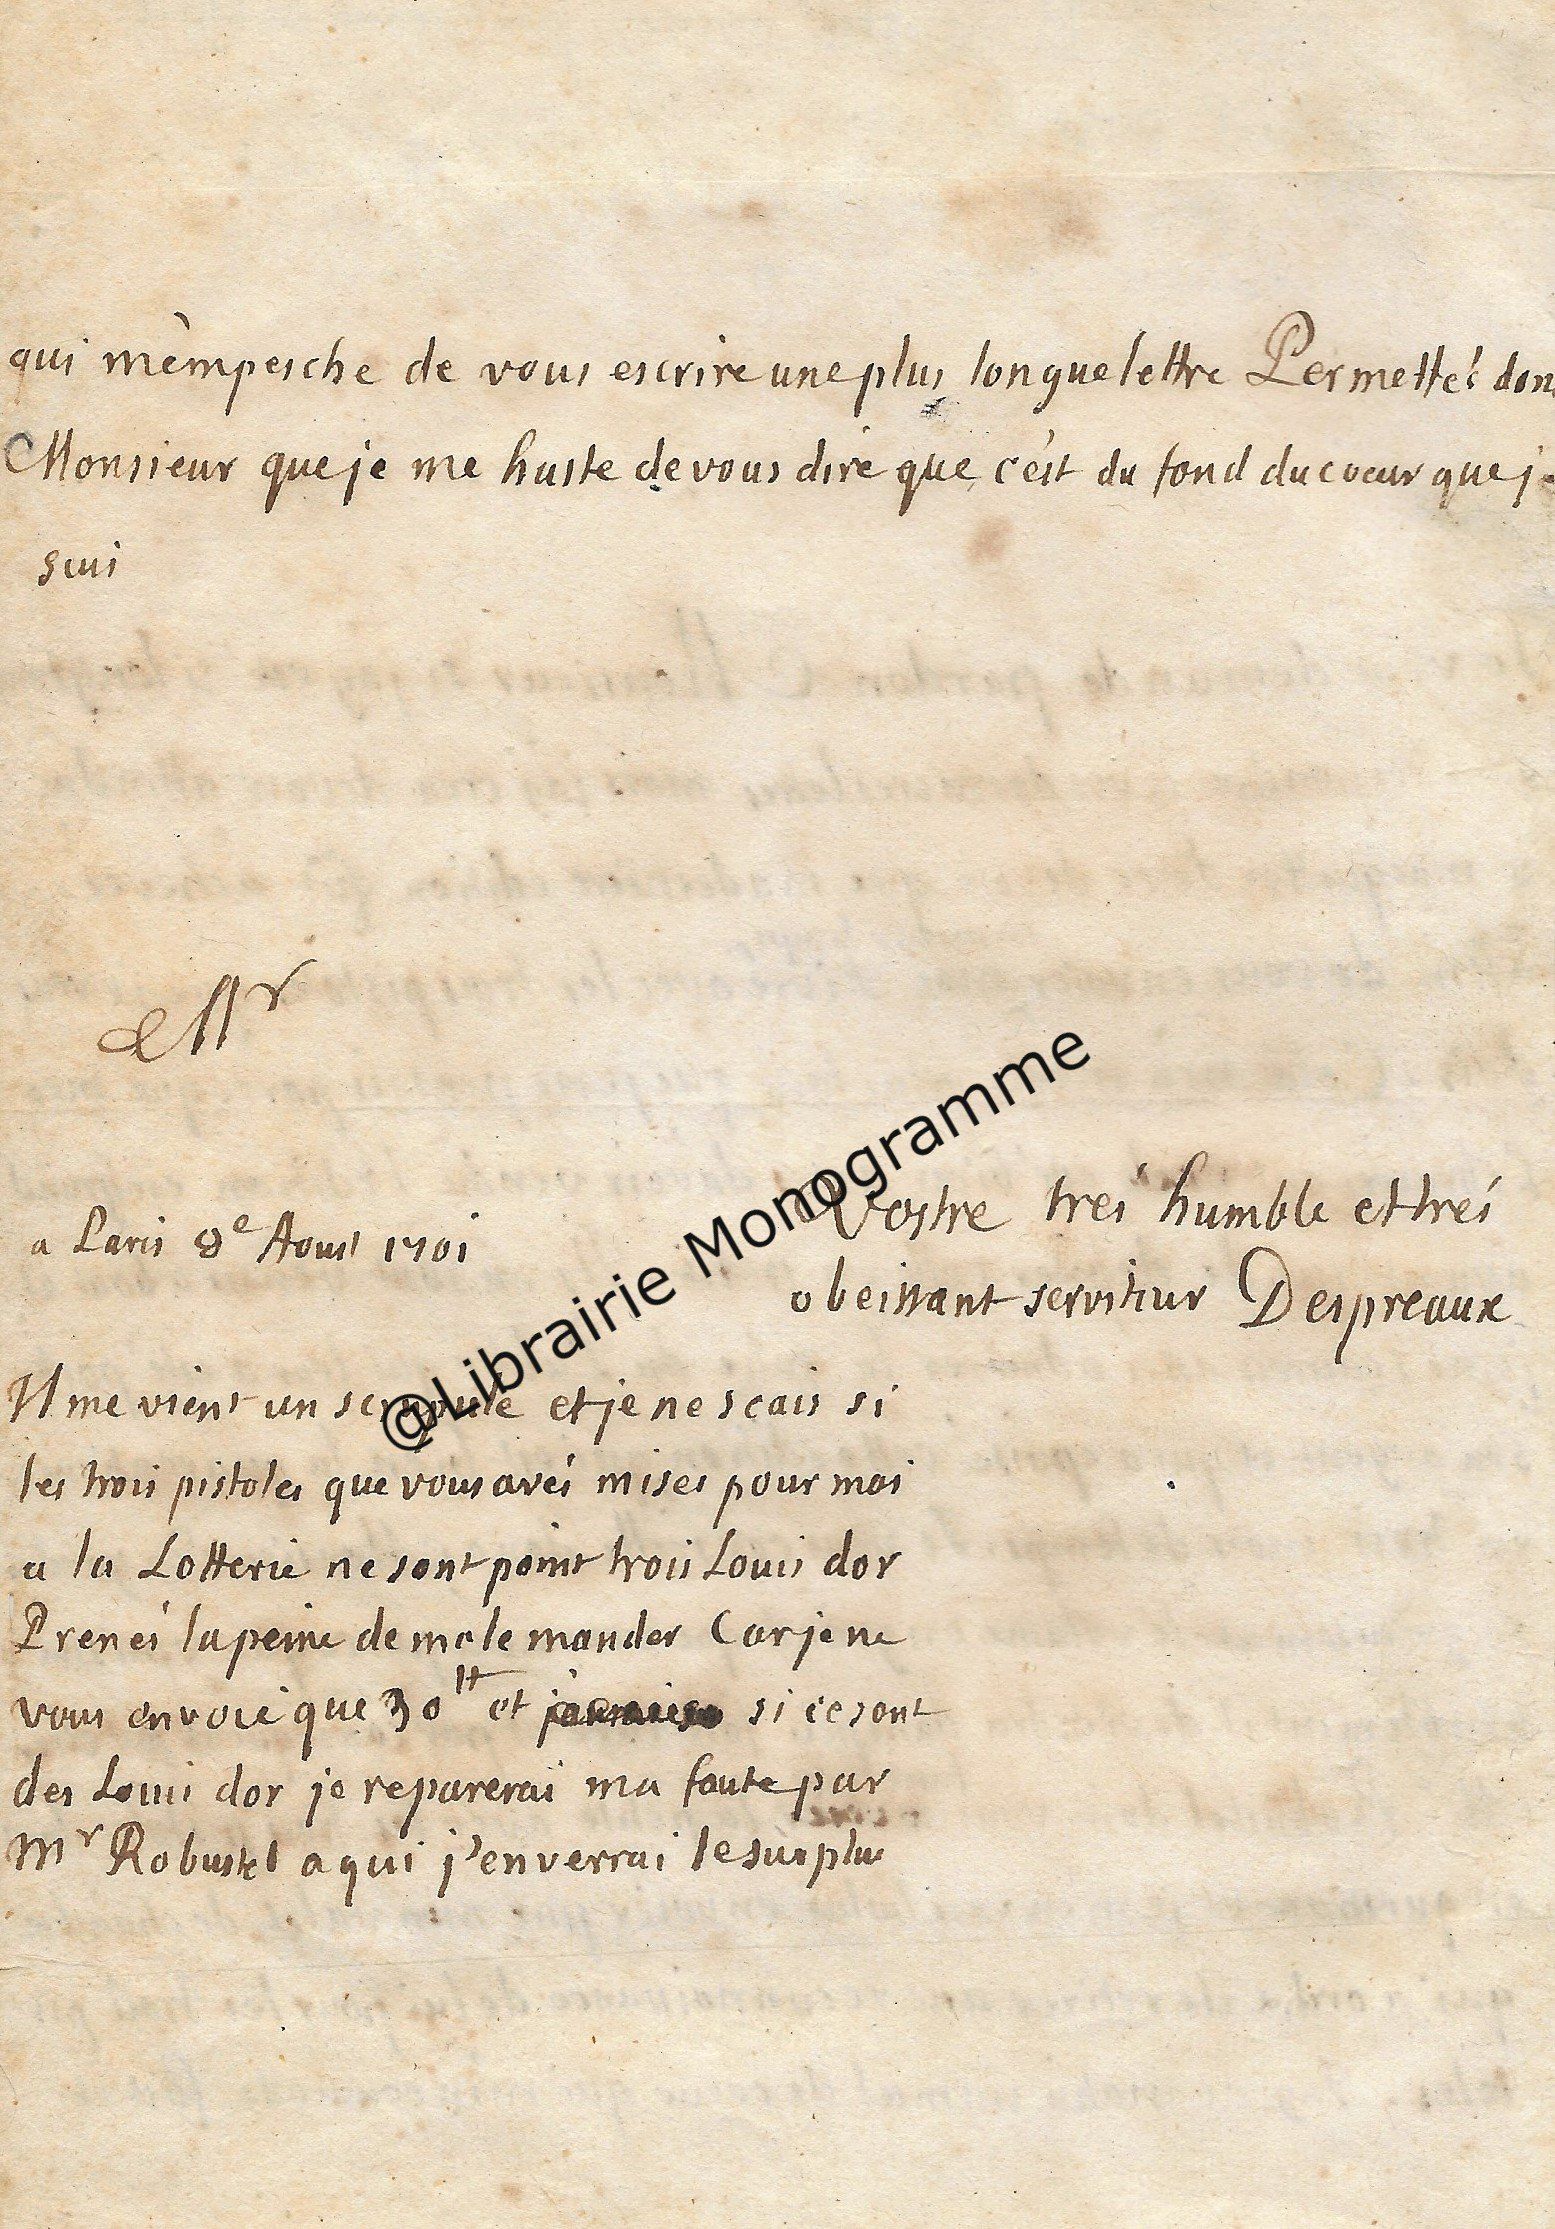 qui m'empesche de vous escrire une plus longue lettre Permettés don
Monsieur que je me haste de vous dire que c'est du fond du cœur que je
suis
Mr
@Librairie Monogramme
Vostre tres humble et trés
a Paris 8e Aoust 1701
obeissant serviteur Despreaux
Il me vient un scrupule et je ne scais si
les trois pistoles que vous avés mises pour moi
a la Lotterie ne sont point trois Louis dor
Prenés la peine de me le mander Car je ne
vous envoie que 30 lt et si ce sont
des Louis dor je reparerai ma faute par
Mr Robustel a qui j'enverrai le surplus